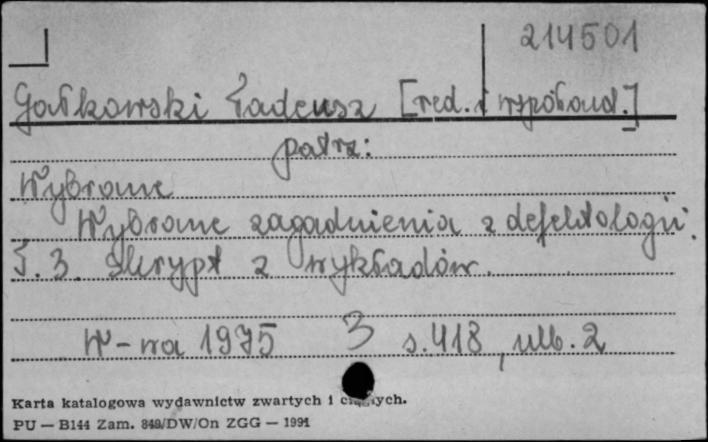 214501
Gałkowski Tadeusz [red. i współaud.]
patrz:
Wybrane
Wybrane zagadnienia z defektologii.
T. 3. Skrypt z wykładów.
W-wa 1975 3 s. 418, nlb. 2
Karta katalogowa wydawnictw zwartych i ciągłych.
PU — B144 Zam. 849/DW/On ZGG — 1991